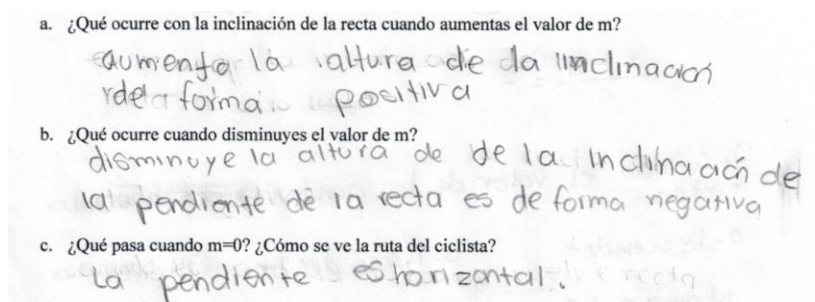 a. ¿Qué ocurre con la inclinación de la recta cuando aumentas el valor de m?
aumenta la altura de la inclinación
de forma positiva
b. ¿Qué ocurre cuando disminuyes el valor de m?
disminuye la altura de de la inclinación de
la pendiente de la recta es de forma negativa
c. ¿Qué pasa cuando m=0? ¿Cómo se ve la ruta del ciclista?
La pendiente es horizontal.